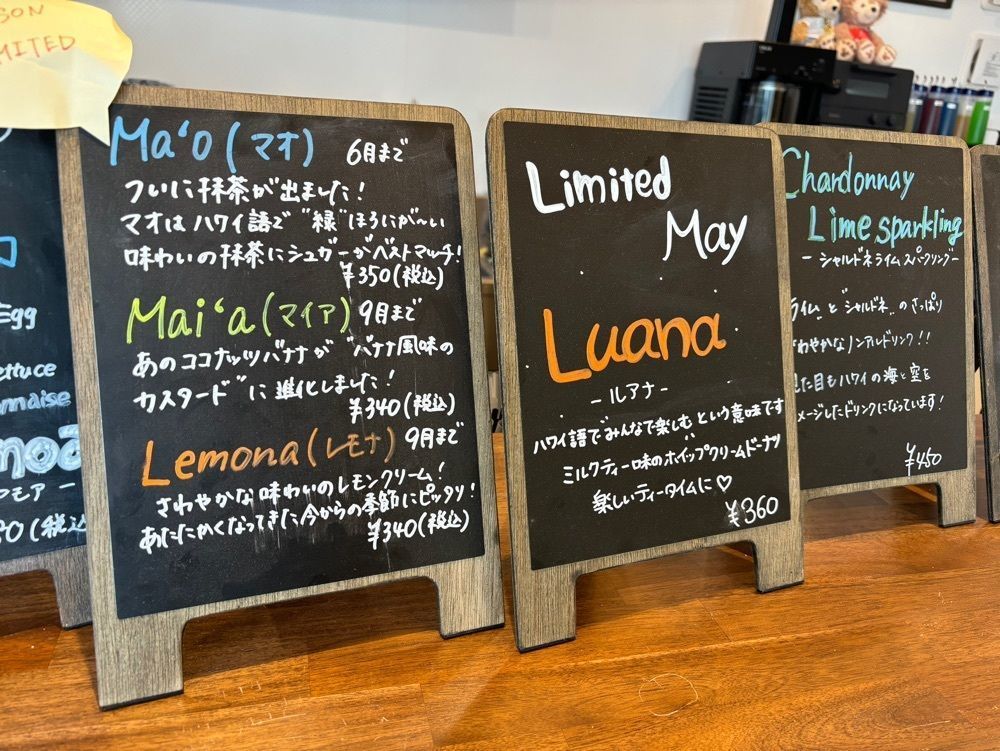 SON
MITED
Egg
ettuce
nnaise
moa
マモア -
80(税込
Ma'o(マオ) 6月まで
ついに抹茶が出ました!
マオはハワイ語で"緑"ほろにが〜い
味わいの抹茶にシュガーがベストマッチ!
¥350(税込)
Mai'a(マイア) 9月まで
あのココナッツバナナが"バナナ風味の
カスタード"に進化しました!
¥340(税込)
Lemona(レモナ) 9月まで
さわやかな味わいのレモンクリーム!
あたたかくなってきた今からの季節にピッタリ!
¥340(税込)
Limited
May
Luana
-ルアナ-
ハワイ語で"みんなで楽しむ"という意味です
ミルクティー味のホイップクリームドーナツ
楽しいティータイムに♡
¥360
Chardonnay
Lime sparkling
-シャルドネライムスパークリング-
ライム"と"シャルドネ"のさっぱり
わやかなノンアルドリンク!!
見た目もハワイの海と空を
メージしたドリンクになっています!
¥450